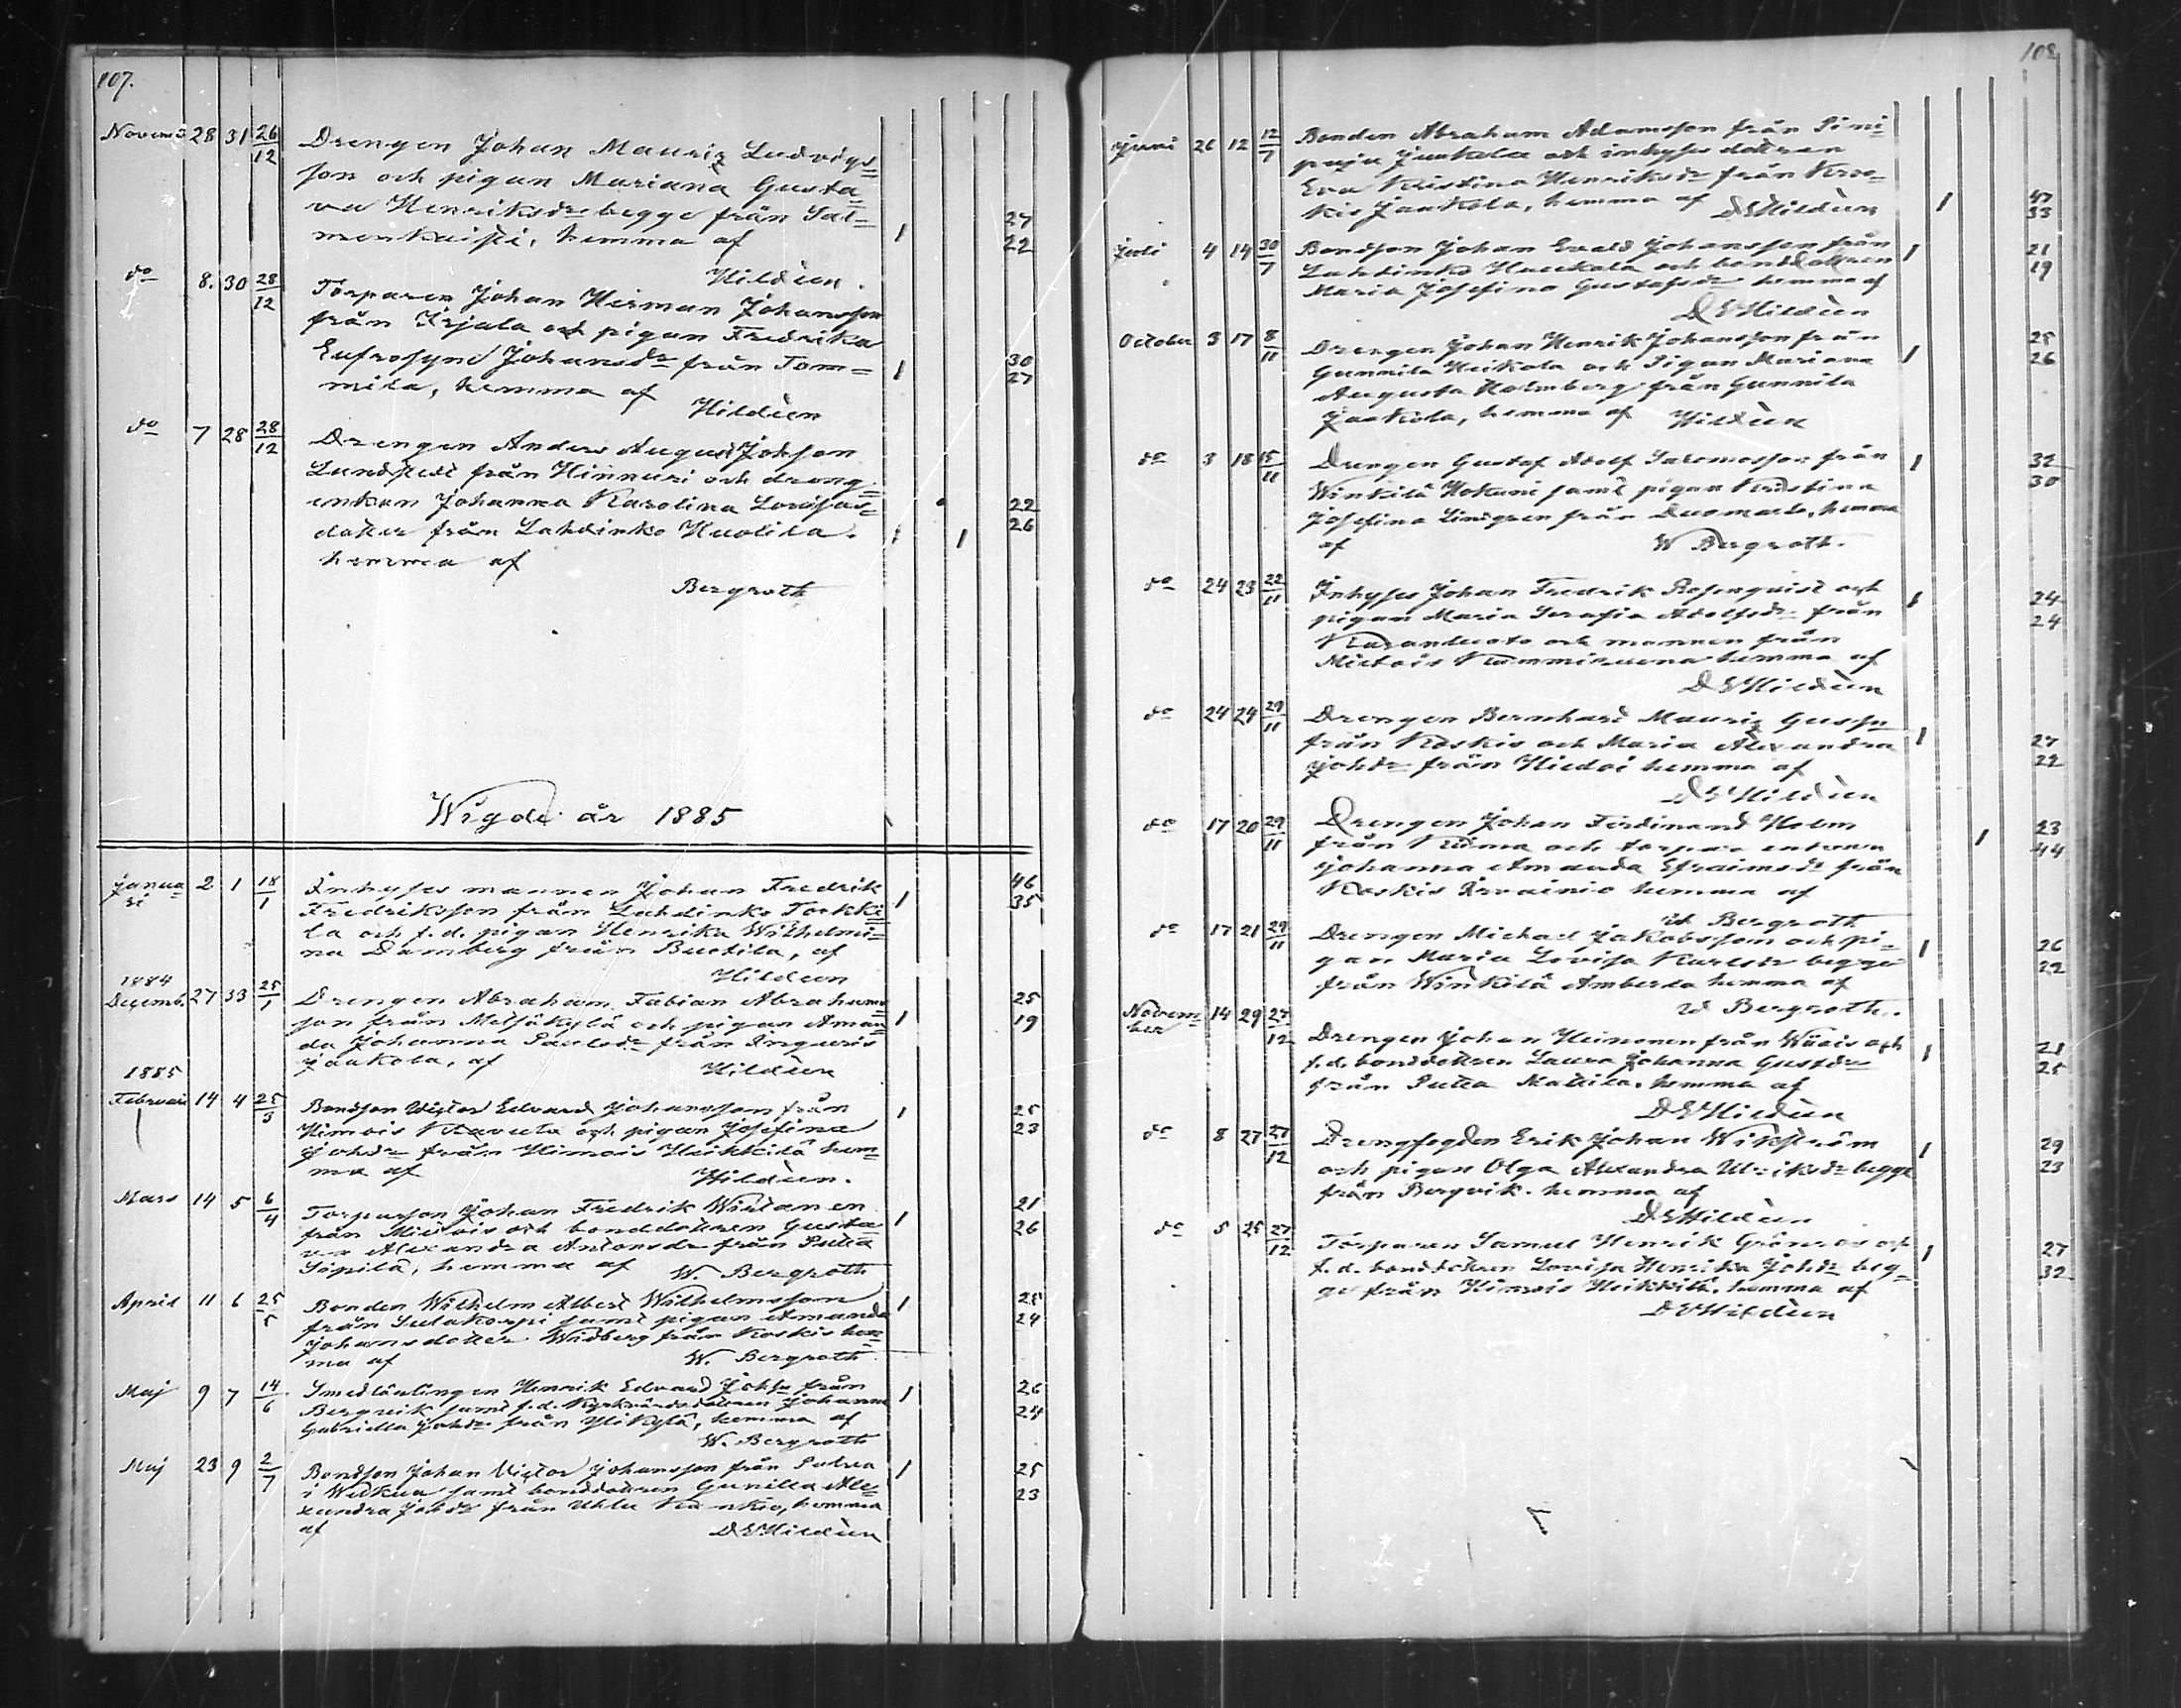 107.
Novemb 28 31 26/12 Drengen Johan Mauriz Ludvigs=
son och pigan Mariana Gusta=
va Henriksdr begge från Sal=
menkaisti, hemma af 1 27 22
Hildèen.
do 8. 30 28/12 Torparen Johan Herman Johansson
från Irjala och pigan Fredrika
Eufrosyne Johansdr från Tom=
mila, hemma af 1 30 27
Hildèen
do 7 28 28/12 Drengen Anders August Johsson
Lundstedt från Hinnuri och dreng=
enkan Johanna Karolina Lovisas=
dotter från Lahdinko Huolila. 1 1 22 26
hemma af
Bergroth
Wigde år 1885
Janua=
ri 2 1 18/1 Inhyses mannen Johan Fredrik
Fredriksson från Lahdinko Torkki=
la och f.d. pigan Henrika Wilhelmi=
na Damberg från Buckila, af 1 46 35
Hildeen
1884
Decemb. 27 33 25/1 Drengen Abraham Fabian Abrahams=
son från Metsäkylä och pigan Aman=
da Johanna Paulsdr från Inguris
Jaakola, af 1 25 19
Hildèen
1885
Februari 14 4 25/3 Bondson Victor Edvard Johansson från
Himois Klavula och pigan Josefina
Johdr från Himois Heikkilä hem=
ma af 1 25 23
Hildèen.
Mars 14 5 6/4 Torparson Johan Fredrik Winlanen
från Mietois och bonddottren Gusta=
va Alexandra Antonsdr från Sulla
Söpilä, hemma af 1 21 26
W. Bergroth
April 11 6 25/5 Bonden Wilhelm Albert Wilhelmsson
från Sulakorpi samt pigan Amanda
Johansdotter Widberg från Koskis hem=
ma af W. Bergroth 1 28 24
Maj 9 7 14/6 Smedlärlingen Henrik Edvard Johsn från
Bergvik samt f.d. Kyrkvärdsdottren Johanna
Gabriella Johdr från Ylikylä, hemma af 1 26 24
W. Bergroth
Maj 23 9 2/7 Bondson Johan Victor Johansson från
i samt bonddottren Gunilla Ale=
xandra Johdr från Uhlu hemma
af DEHildèen 1 25 23
108
Juni 26 12 12/7 Bonden Abraham Adamsson från Pini=
paju Juukola och inhyses dottren
Eva Kristina Henriksdr från Kros=
kis Jaakola, hemma af DEHildèen 1 47 33
Juli 4 14 30/7 Bondson Johan Evald Johansson från
Lahdinko Huukola och bonddottren
Maria Josefina Gustafsdr hemma af 1 21 19
DEHildèen
October 3 17 8/11 Drengen Johan Henrik Johansson från
Gunnila Heikola och Pigan Mariana
Augusta Holmberg från Gunnila
Jaakola, hemma af Hildèen 1 25 26
do 3 18 15/11 Drengen Gustaf Adolf Salomosson från
Winkilä Hokuni samt pigan Kristina
Josefina Lindgren från hemma
af W Bergroth. 1 32 30
do 24 23 22/11 Inhyses Johan Fredrik Rosenqvist och
pigan Maria Serafia Adolfsdr från
Karanluoto och mannen från
Mietois hemma af 1 24 24
DEHildèen
do 24 24 29/11 Drengen Bernhard Mauriz Gussn
från Koskis och Maria Alexandra
Johdr från Hiedoi hemma af 1 27 22
DEHildèen
do 17 20 29/11 Drengen Johan Ferdinand Holm
från och torpare enkan
Johanna Amanda Efraimsdr från
Koskis hemma af 1 23 44
W Bergroth
do 17 21 29/11 Drengen Michael Jakobsson och pi=
gan Maria Lovisa Karlsdr begge
från Winkilä Amberla hemma af 1 26 22
W Bergroth.
Novem=
ber 14 29 27/12 Drengen Johan Heinonen från Wäais och
f.d. bonddottren Laura Johanna Gustdr
från Sulla Mattila, hemma af 1 21 25
DEHildèen
do 8 27 27/12 Drengfogden Erik Johan Wikström
och pigan Olga Alexandra Ulriksdr begge
från Bergvik. hemma af 1 29 23
DEHildèen
do 5 25 27/12 Torparen Samuel Henrik Grönroos och
f.d. bonddottren Lovisa Henrika Johdr beg=
ge från Himois Heikkilä, hemma af 1 27 32
DEHildèen